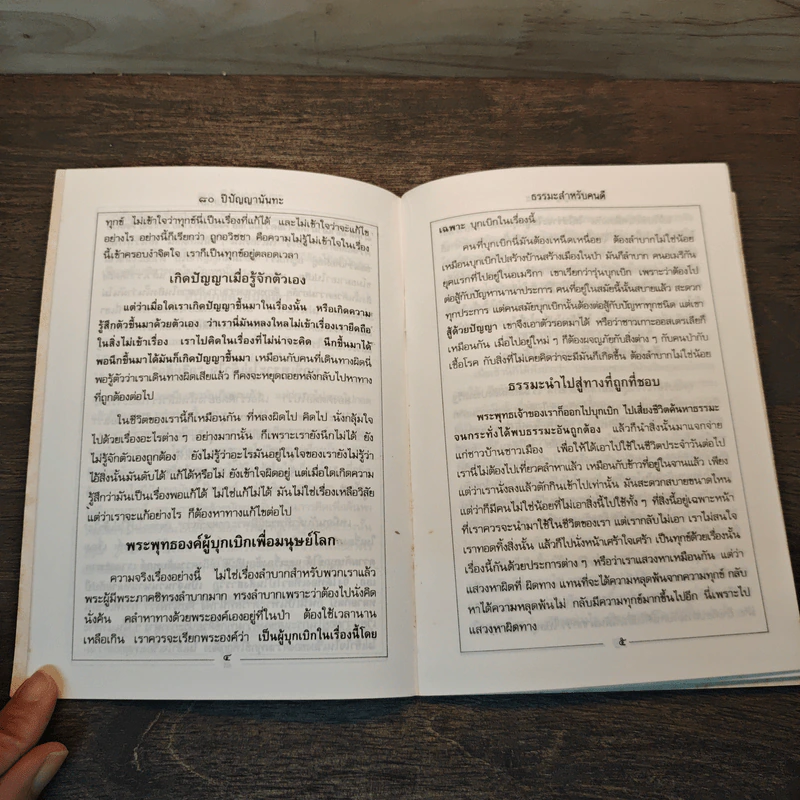 ๘๐ ปีปัญญานันทะ
ทุกข์ ไม่เข้าใจว่าทุกข์นี่เป็นเรื่องที่แก้ได้ และไม่เข้าใจว่าจะแก้ไข
อย่างไร อย่างนี้ก็เรียกว่า ถูกอวิชชา คือความไม่รู้ไม่เข้าใจในเรื่อง
นี้เข้าครอบงำจิตใจ เราก็เป็นทุกข์อยู่ตลอดเวลา
เกิดปัญญาเมื่อรู้จักตัวเอง
แต่ว่าเมื่อใดเราเกิดปัญญาขึ้นมาในเรื่องนั้น หรือเกิดความ
รู้สึกตัวขึ้นมาด้วยตัวเอง ว่าเรานี่มันหลงใหลไม่เข้าเรื่องเรายึดถือ
ในสิ่งไม่เข้าเรื่อง เราไปคิดในเรื่องที่ไม่น่าจะคิด นึกขึ้นมาได้
พอนึกขึ้นมาได้มันก็เกิดปัญญาขึ้นมา เหมือนกับคนที่เดินทางผิดนี่
พอรู้ตัวว่าเราเดินทางผิดเสียแล้ว ก็คงจะหยุดถอยหลังกลับไปหาทาง
ที่ถูกต้องต่อไป
ในชีวิตของเรานี้ก็เหมือนกัน ที่หลงผิดไป คิดไป นั่งกลุ้มใจ
ไปด้วยเรื่องอะไรต่างๆ อย่างมากนั้น ก็เพราะเรายังนึกไม่ได้ ยัง
ไม่รู้จักตัวเองถูกต้อง ยังไม่รู้ว่าอะไรมันอยู่ในใจของเรายังไม่รู้ว่า
ไอ้สิ่งนั้นมันดับได้ แก้ได้หรือไม่ ยังเข้าใจผิดอยู่ แต่เมื่อใดเกิดความ
รู้สึกว่ามันเป็นเรื่องพอแก้ได้ ไม่ใช่แก้ไม่ได้ มันไม่ใช่เรื่องเหลือวิสัย
แต่ว่าเราจะแก้อย่างไร ก็ต้องหาทางแก้ไขต่อไป
พระพุทธองค์ผู้บุกเบิกเพื่อมนุษย์โลก
ความจริงเรื่องอย่างนี้ ไม่ใช่เรื่องลำบากสำหรับพวกเราแล้ว
พระผู้มีพระภาคซิทรงลำบากมาก ทรงลำบากเพราะว่าต้องไปนั่งคิด
นั่งค้น คลำหาทางด้วยพระองค์เองอยู่ที่ในป่า ต้องใช้เวลานาน
เหลือเกิน เราควรจะเรียกพระองค์ว่า เป็นผู้บุกเบิกในเรื่องนี้โดย
๔
ธรรมะสำหรับคนดี
เฉพาะ บุกเบิกในเรื่องนี้
คนที่บุกเบิกนี่มันต้องเหน็ดเหนื่อย ต้องลำบากไม่ใช่น้อย
เหมือนบุกเบิกไปสร้างบ้านสร้างเมืองในป่า มันก็ลำบาก คนอเมริกัน
ยุคแรกที่ไปอยู่ในอเมริกา เขาเรียกว่ารุ่นบุกเบิก เพราะว่าต้องไป
ต่อสู้กับปัญหานานาประการ คนที่อยู่ในสมัยนี้นั้นสบายแล้ว สะดวก
ทุกประการ แต่คนสมัยบุกเบิกนั้นต้องต่อสู้กับปัญหาทุกชนิด แต่เขา
สู้ด้วยปัญญา เขาจึงเอาตัวรอดมาได้ หรือว่าชาวเกาะออสเตรเลียก็
เหมือนกัน เมื่อไปอยู่ใหม่ๆ ก็ต้องผจญภัยกับสิ่งต่างๆ กับคนป่ากับ
เชื้อโรค กับสิ่งที่ไม่เคยคิดว่าจะมีมันก็เกิดขึ้น ต้องลำบากไม่ใช่น้อย
ธรรมะนำไปสู่ทางที่ถูกที่ชอบ
พระพุทธเจ้าของเราก็ออกไปบุกเบิก ไปเสี่ยงชีวิตค้นหาธรรมะ
จนกระทั่งได้พบธรรมะอันถูกต้อง แล้วก็นำสิ่งนั้นมาแจกจ่าย
แก่ชาวบ้านชาวเมือง เพื่อให้ได้เอาไปใช้ในชีวิตประจำวันต่อไป
เรานี่ไม่ต้องไปเที่ยวคลำหาแล้ว เหมือนกับข้าวที่อยู่ในจานแล้ว เพียง
แต่ว่าเรานั่งลงแล้วตักกินเข้าไปเท่านั้น มันสะดวกสบายขนาดไหน
แต่ว่าก็มีคนไม่ใช่น้อยที่ไม่เอาสิ่งนี้ไปใช้ทั้งๆ ที่สิ่งนี้อยู่เฉพาะหน้า
ที่เราควรจะนำมาใช้ในชีวิตของเรา แต่เรากลับไม่เอา เราไม่สนใจ
เราทอดทิ้งสิ่งนั้น แล้วก็ไปนั่งหน้าเศร้าใจเศร้า เป็นทุกข์ด้วยเรื่องนั้น
เรื่องนี้กันด้วยประการต่างๆ หรือว่าเราแสวงหาเหมือนกัน แต่ว่า
แสวงหาผิดที่ ผิดทาง แทนที่จะได้ความหลุดพ้นจากความทุกข์ กลับ
หาได้ความหลุดพ้นไม่ กลับมีความทุกข์มากขึ้นไปอีก นี่เพราะไป
แสวงหาผิดทาง
๕